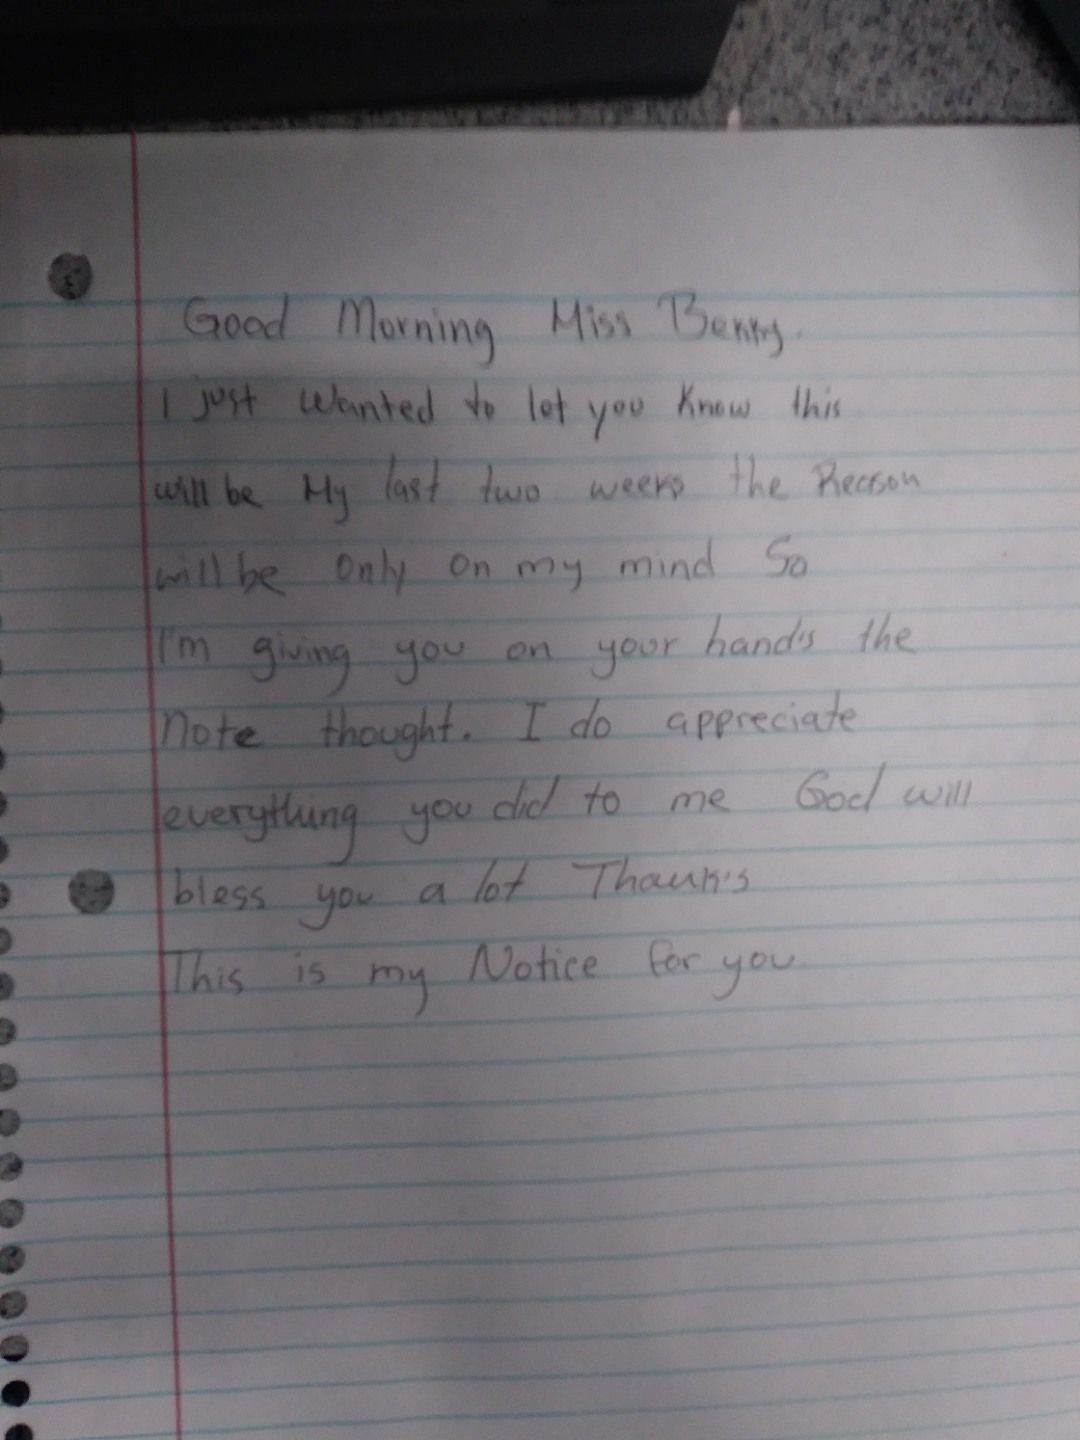 Good Morning Miss Benny.
I just wanted to let you Know this
will be My last two weeks the Reason
will be Only on my mind So
I'm giving you on your hand's the
note thought. I do appreciate
everything you did to me God will
bless you a lot Thank's
This is my Notice for you.